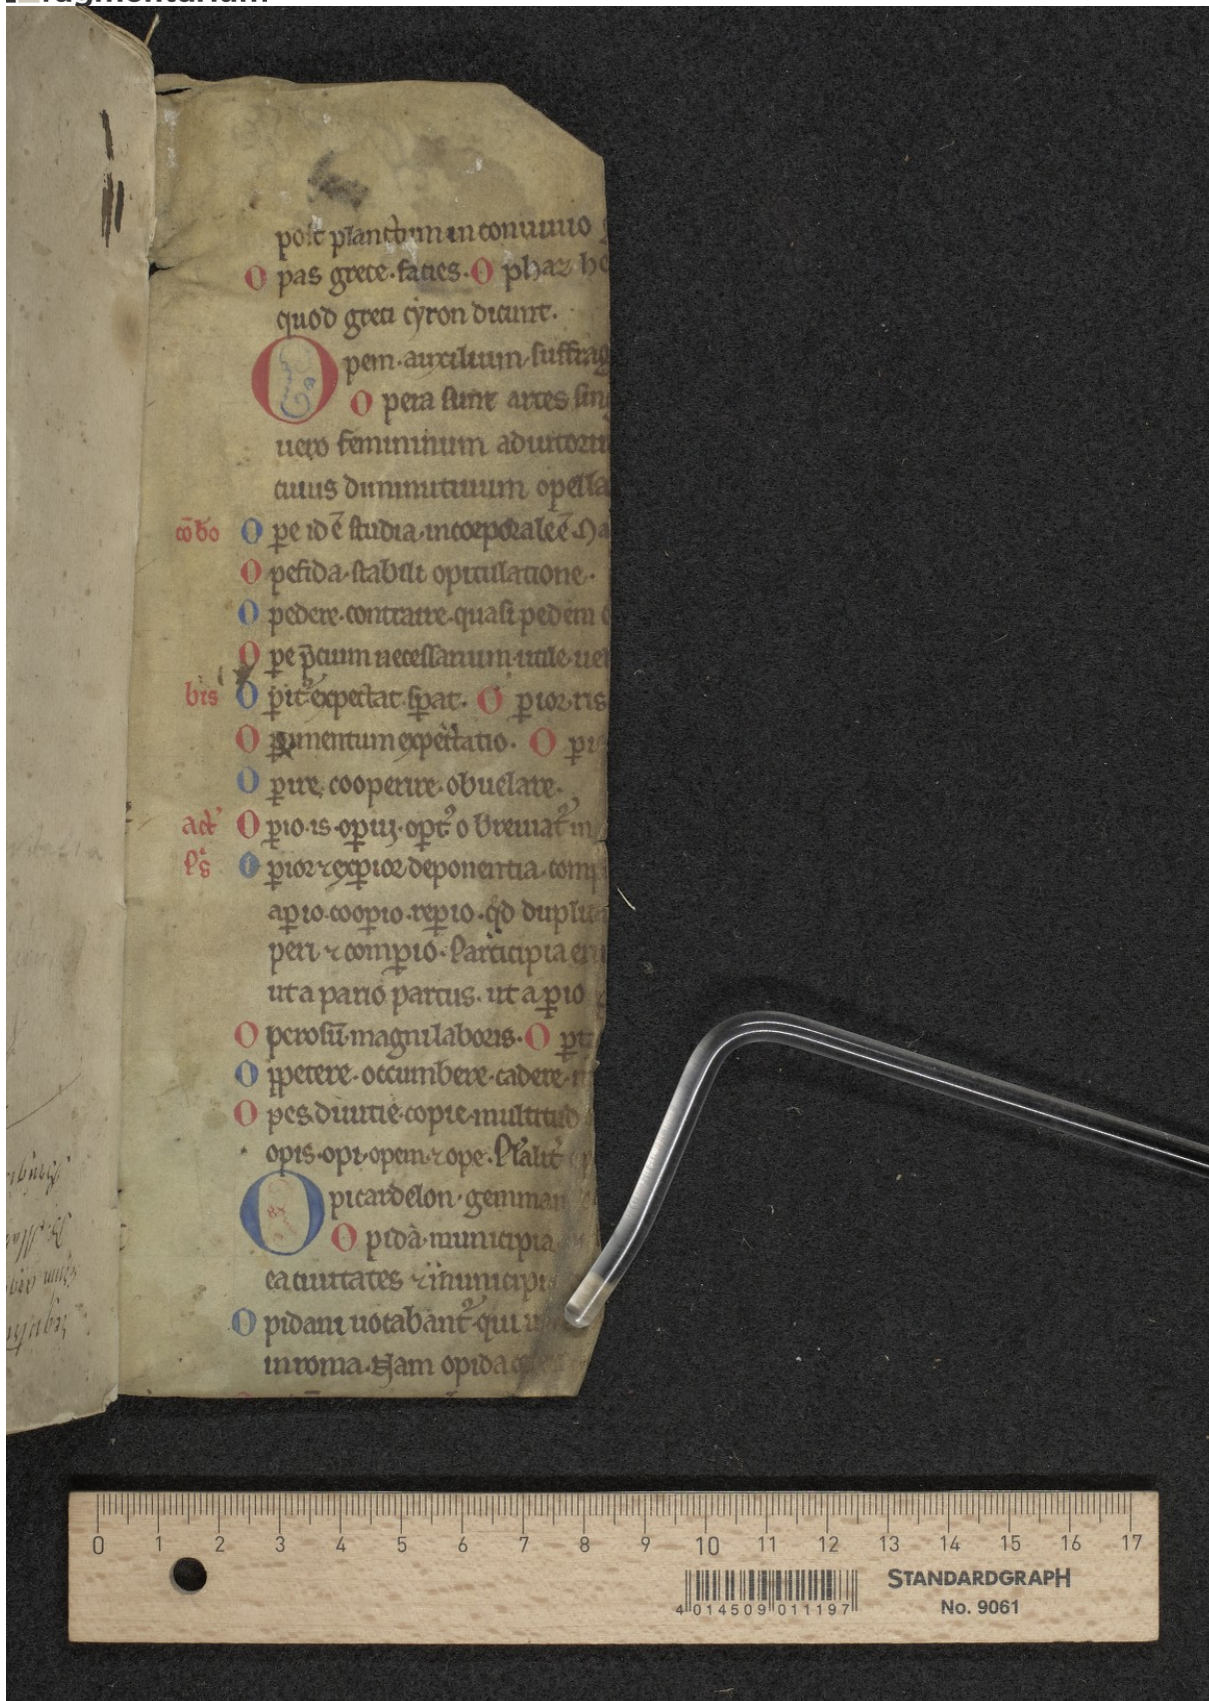 Fragmentarium
post planctum in conuiuio
O pas grece·facies· O phaz he
quod greci cyron dicunt.
O pem·auxilium·suffrag
O pera sunt artes sing
uero femininum adiutoriu
cuius diminutiuum opella
co᷒bo O pe id ē studia·incorporale ē·
O pefida·stabili opitulatione·
O pedere·contraire·quasi pedem
O pe p̄cium necessarium·utile·uel
bis O ꝑit᷒ expectat sꝑat· O ꝑior·ris
O ꝑimentum expectatio· O ꝑi
O ꝑire, cooperire·obuelare·
act᷒ O ꝑio·is·oꝑui·oꝑt᷒ o breuiat᷒ in
O ꝑior ⁊ exꝑior deponentia·comp
aꝑio·cooꝑio·reꝑio·qd dupli
peri ⁊ comꝑio·Participia
ut a pario partus·ut aꝑio
O perosū·magni laboris· O ꝑt
O ppetere·occumbere·cadere·
O pes·diuitie·copie·multitud
opis·opi·opem·⁊ope·Pl᷒alit᷒
O picardelon·gemman
O pida·municipia
ea ciuitates ⁊ in municipi
O pidani uocabant᷒ qui
in roma·Nam opida
0 1 2 3 4 5 6 7 8 9 10 11 12 13 14 15 16 17
STANDARDGRAPH
4 014509 011197
No. 9061